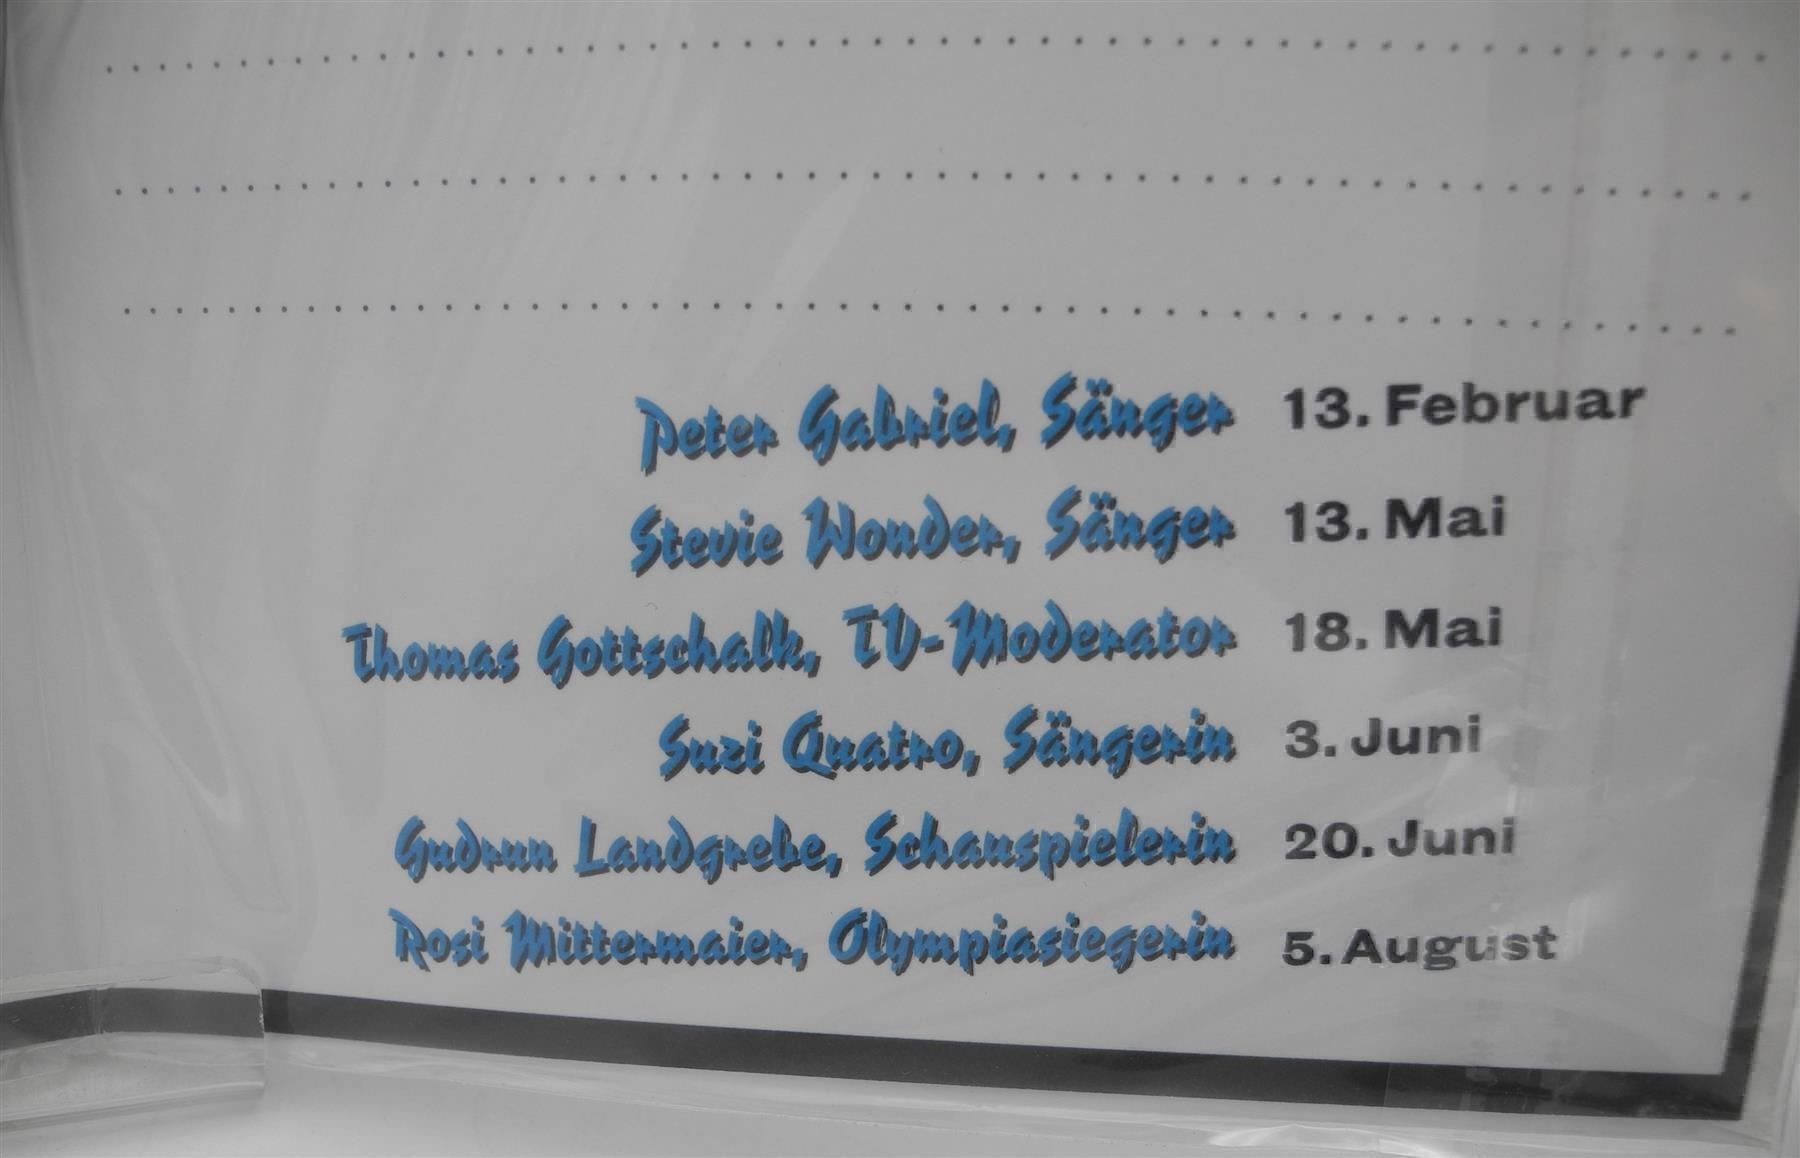 Peter Gabriel, Sänger 13. Februar
Stevie Wonder, Sänger 13. Mai
Thomas Gottschalk, TV-Moderator 18. Mai
Suzi Quatro, Sängerin 3. Juni
Gudrun Landgrebe, Schauspielerin 20. Juni
Rosi Mittermaier, Olympiasiegerin 5. August